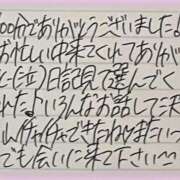 00分でありがとうございました♪
お忙しい中来てくれてありが
に(泣)日記見て選んでく
れた♪いろんなお話して沢
できたね
ても会いに来て下さい〜